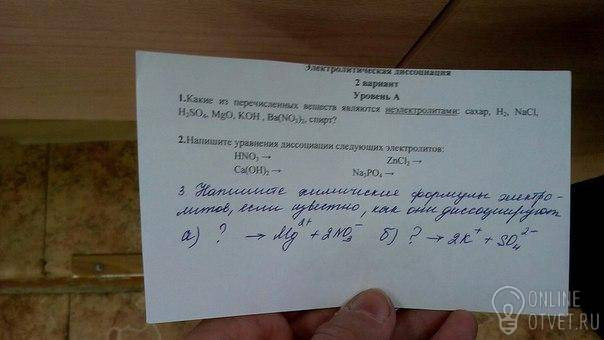 Электролитическая диссоциация
2 вариант
Уровень А
1.Какие из перечисленных веществ являются неэлектролитами: сахар, H₂, NaCl,
H₂SO₄, MgO, KOH , Ba(NO₃)₂, спирт?
2.Напишите уравнения диссоциации следующих электролитов:
HNO₃ → ZnCl₂ →
Ca(OH)₂ → Na₃PO₄ →
3. Напишите химические формулы электро-
литов, если известно, как они диссоциируют
а) ? → Mg²⁺ + 2NO₃⁻ б) ? → 2K⁺ + SO₄²⁻
ONLINE
OTVET.RU